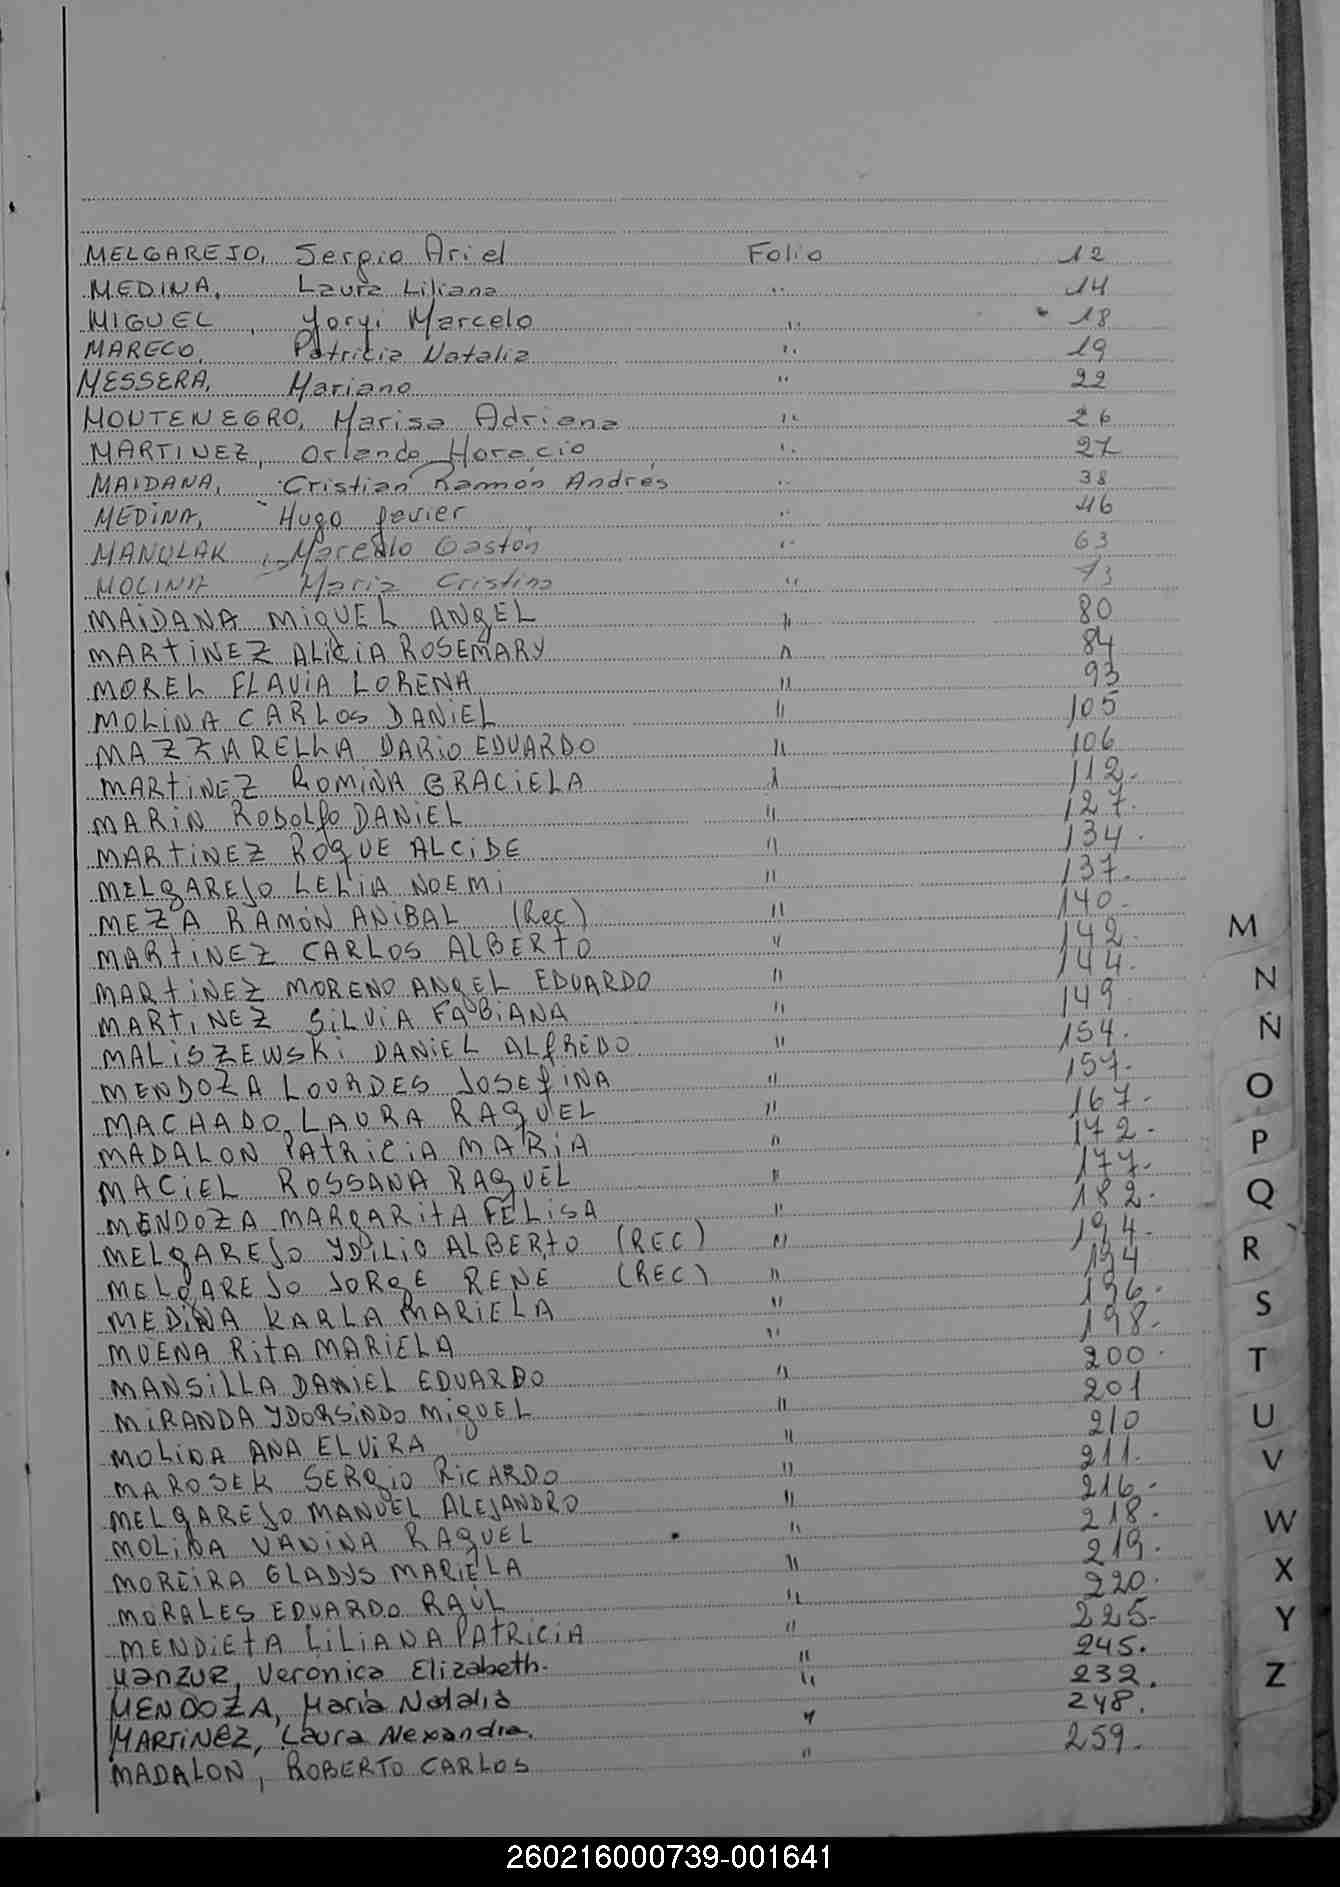 MELGAREJO, Sergio Ariel Folio 12
MEDINA, Laura Liliana " 14
MIGUEL, Yoryi Marcelo " 18
MARECO, Patricia Natalia " 19
MESSERA, Mariano " 22
MONTENEGRO, Marisa Adriana " 26
MARTINEZ, Orlando Horacio " 27
MAIDANA, Cristian Ramón Andrés " 38
MEDINA, Hugo Javier " 46
MANULAK, Marcelo Gastón " 63
MOLINA Maria Cristina " 73
MAIDANA MIGUEL ANGEL " 80
MARTINEZ ALICIA ROSEMARY " 84
MOREL FLAVIA LORENA " 93
MOLINA CARLOS DANIEL " 105
MAZZARELLA DARIO EDUARDO " 106
MARTINEZ ROMINA GRACIELA " 112.
MARIN RODOLFO DANIEL " 127.
MARTINEZ ROQUE ALCIDE " 134.
MELGAREJO LELIA NOEMI " 137.
MEZA RAMÓN ANIBAL (Rec) " 140.
MARTINEZ CARLOS ALBERTO " 142.
MARTINEZ MORENO ANGEL EDUARDO " 144.
MARTINEZ SILVIA FABIANA " 149
MALISZEWSKI DANIEL ALFREDO " 154.
MENDOZA LOURDES JOSEFINA " 157.
MACHADO LAURA RAQUEL " 167.
MADALON PATRICIA MARIA " 172.
MACIEL ROSSANA RAQUEL " 177.
MENDOZA MARGARITA FELISA " 182.
MELGAREJO YDILIO ALBERTO (REC) " 194.
MELGAREJO JORGE RENE (REC) " 194
MEDINA KARLA MARIELA " 196.
MUENA RITA MARIELA " 198.
MANSILLA DANIEL EDUARDO " 200.
MIRANDA YDORSINDO MIGUEL " 201
MOLINA ANA ELVIRA " 210
MAROSEK SERGIO RICARDO " 211.
MELGAREJO MANUEL ALEJANDRO " 216.
MOLINA VANINA RAQUEL " 218.
MOREIRA GLADYS MARIELA " 219.
MORALES EDUARDO RAÚL " 220.
MENDIETA LILIANA PATRICIA " 225.
MANZUR, Veronica Elizabeth. " 245.
MENDOZA, Maria Natalia " 232.
MARTINEZ, Laura Alexandra. " 248.
MADALON, ROBERTO CARLOS " 259.
M
N
Ñ
O
P
Q
R
S
T
U
V
W
X
Y
Z
260216000739-001641